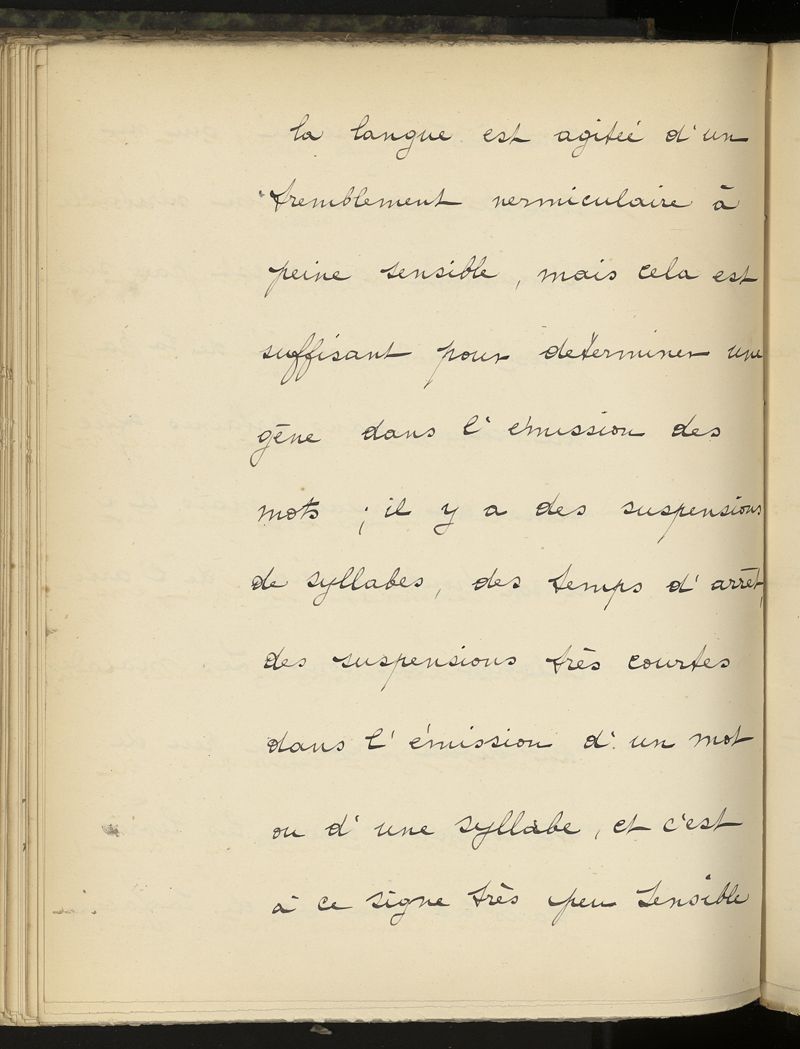 la langue est agitée d'un
tremblement vermiculaire à
peine sensible, mais cela est
suffisant pour déterminer une
gêne dans l'émission des
mots ; il y a des suspensions
de syllabes, des temps d'arrêt,
des suspensions très courtes
dans l'émission d'un mot
ou d'une syllabe, et c'est
à ce signe très peu sensible